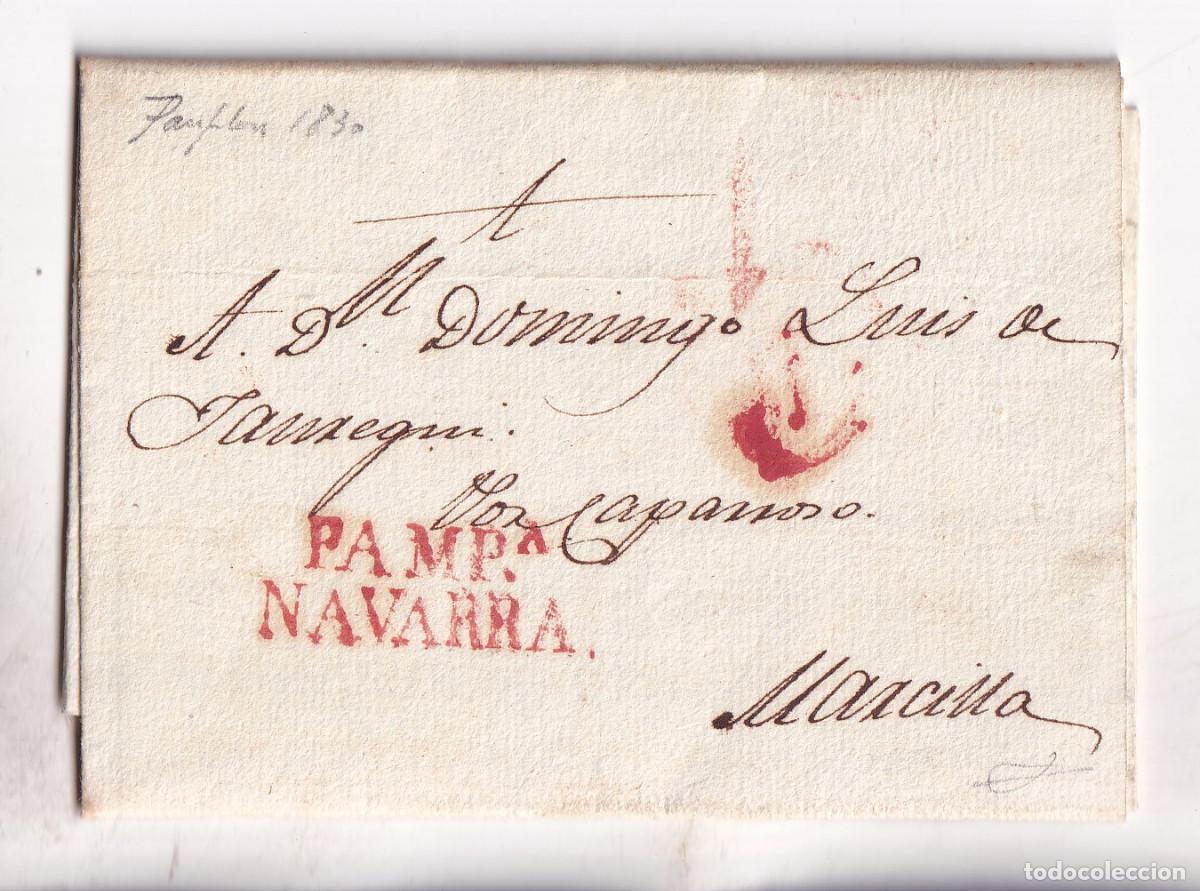 Pamplon 1830
A. Dn. Domingo Luis de
Jauregui.
Por Caparroso.
PAMP.A
NAVARRA.
Marcilla
todocoleccion